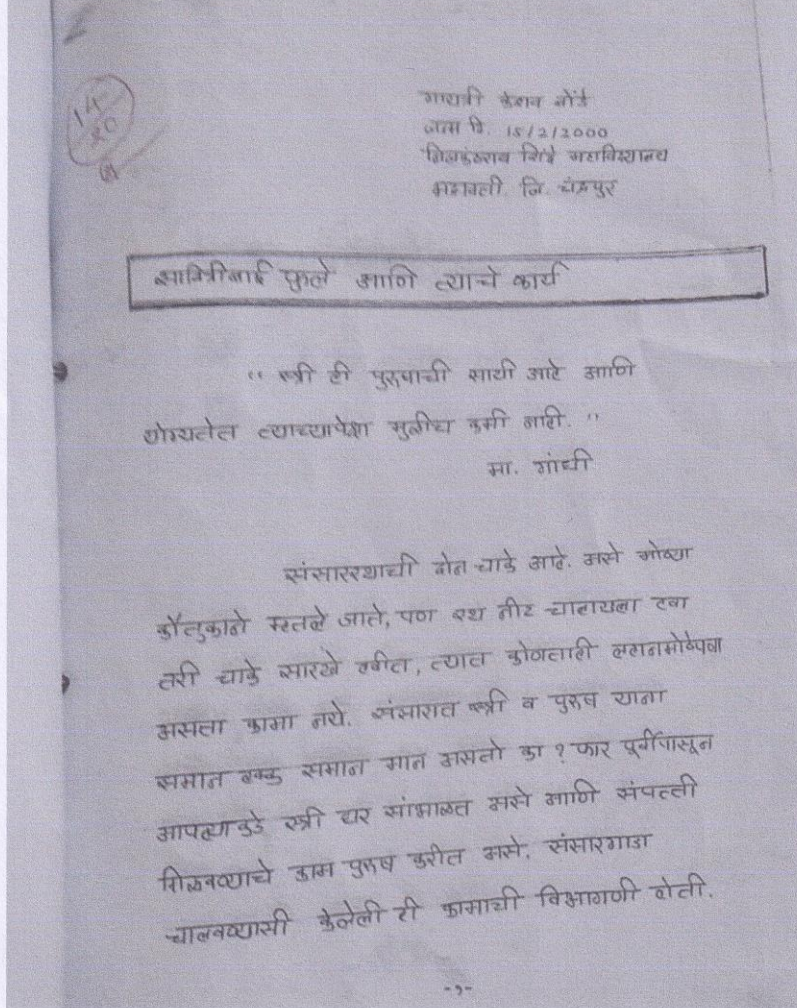 14
20
गायत्री केशव बोंडे
जन्म दि. 15/2/2000
निळकंठराव शिंदे महाविद्यालय
भद्रावती. जि. चंद्रपुर
सावित्रीबाई फुले आणि त्याचे कार्य
“ स्त्री ही पुरुषाची साथी आहे आणि
योग्यतेत त्याच्यापेक्षा मुळीच कमी नाही. ”
मा. गांधी
संसाररथाची दोन चाके आहे. असे मोठ्या
कौतुकाने म्हतले जाते, पण रथ नीट चालायला हवा
तरी चाके सारखे हवीत, त्यात कोणताही लहानमोठेपणा
असता कामा नये. संसारात स्त्री व पुरुष याना
समान हक्क समान मान असतो का ? फार पूर्वीपासून
आपल्याकडे स्त्री घर सांभाळत असे आणि संपत्ती
मिळवण्याचे काम पुरुष करीत असे. संसारगाडा
चालवण्यासी केलेली ही कामाची विभागणी होती.
-१-